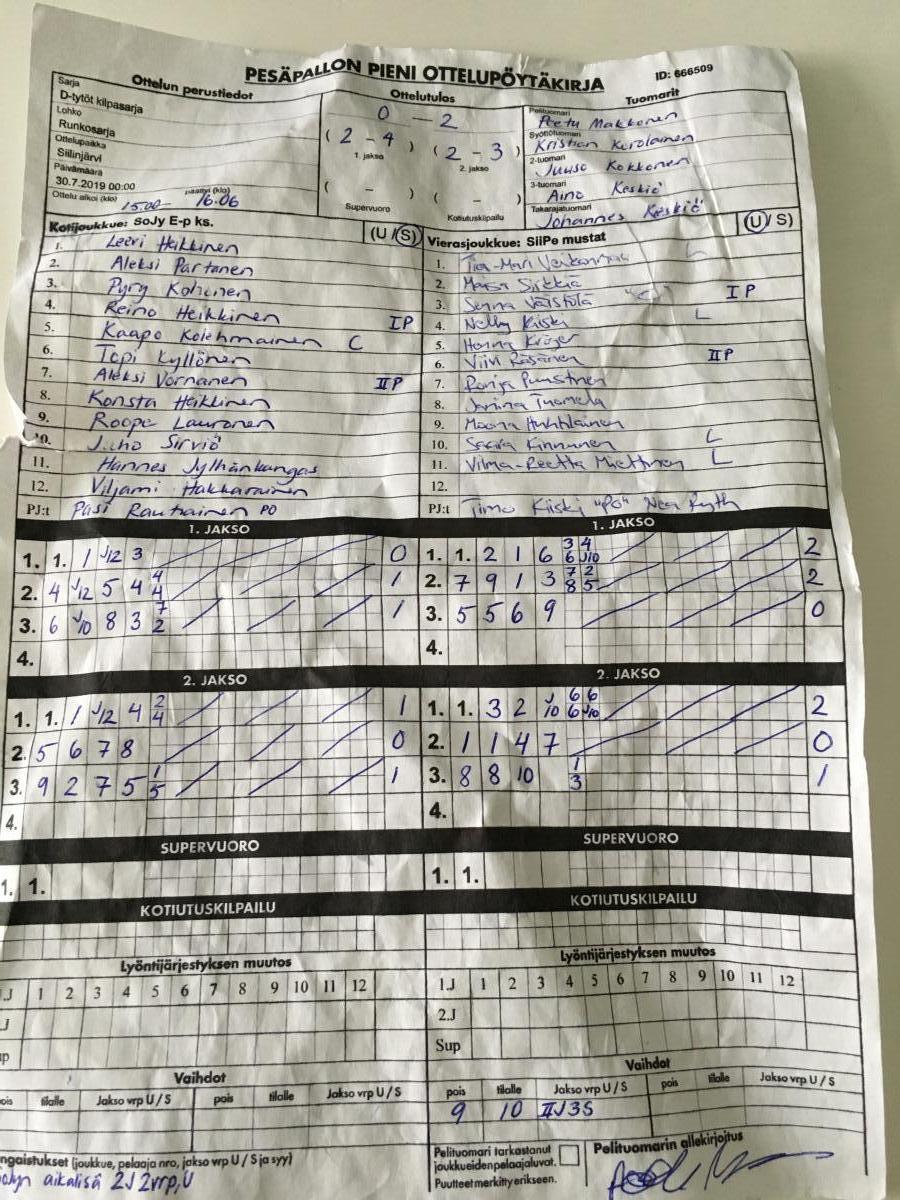 PESÄPALLON PIENI OTTELUPÖYTÄKIRJA
ID: 666509
Ottelun perustiedot
Sarja
D-tytöt kilpasarja
Lohko
Runkosarja
Ottelupaikka
Siilinjärvi
Päivämäärä
30.7.2019 00:00
Ottelu alkoi (klo) 15.00 - päättyi (klo) 16.06
Ottelutulos
0 - 2
( 2 - 4 ) ( 2 - 3 )
1. jakso 2. jakso
( - ) ( - )
Supervuoro Kotiutuskilpailu
Tuomarit
Pelituomari
Peetu Makkonen
Syöttötuomari
Kristian Korolainen
2-tuomari
Juuso Kokkonen
3-tuomari
Aino Keskiö
Takarajatuomari
Johannes Keskiö
Kotijoukkue: SoJy E-p ks. (U / S)
1. Leevi Heikkinen
2. Aleksi Partanen
3. Pyry Kohonen
4. Reino Heikkinen IP
5. Kaapo Kolehmainen C
6. Topi Kyllönen
7. Aleksi Vornanen IIP
8. Konsta Heikkinen
9. Roope Lauronen
10. Juho Sirviö
11. Hannes Jylhänkangas
12. Viljami Hakkarainen
PJ:t Pasi Rautiainen PO
Vierasjoukkue: SiiPe mustat (U / S)
1. Tia-Mari
2. Maisa
3. Senna IP
4. Nelly Kiiski L
5. Hanna Kröger
6. Viivi Räsänen IIP
7. Ronja Puustinen
8. Janina Tuomela
9. Moona Huhtilainen
10. Saara Kinnunen L
11. Vilma-Reetta Miettinen L
12.
PJ:t Timo Kiiski "PO" Nea
1. JAKSO
1. 1. 1 J12 3 0
2. 4 J12 5 4 4/4 1
3. 6 J10 8 3 7/2 1
4.
1. JAKSO
1. 1. 2 1 6 3/6 4/J10 2
2. 7 9 1 3 7/8 2/5 2
3. 5 5 6 9 0
4.
2. JAKSO
1. 1. 1 J12 4 2/4 1
2. 5 6 7 8 0
3. 9 2 7 5 1/5 1
4.
2. JAKSO
1. 1. 3 2 J10 6/6 6/J10 2
2. 1 1 4 7 0
3. 8 8 10 1/3 1
4.
SUPERVUORO
1. 1.
SUPERVUORO
1. 1.
KOTIUTUSKILPAILU
KOTIUTUSKILPAILU
Lyöntijärjestyksen muutos
.J 1 2 3 4 5 6 7 8 9 10 11 12
J
up
Lyöntijärjestyksen muutos
1.J 1 2 3 4 5 6 7 8 9 10 11 12
2.J
Sup
Vaihdot
ois tilalle Jakso vrp U / S pois tilalle Jakso vrp U / S
Vaihdot
pois tilalle Jakso vrp U / S pois tilalle Jakso vrp U / S
9 10 IIJ3S
ngaistukset (joukkue, pelaaja nro, jakso vrp U / S ja syy)
aikalisä 2J 2vrp, U
Pelituomari tarkastanut
joukkueiden pelaajaluvat.
Puutteet merkitty erikseen.
Pelituomarin allekirjoitus